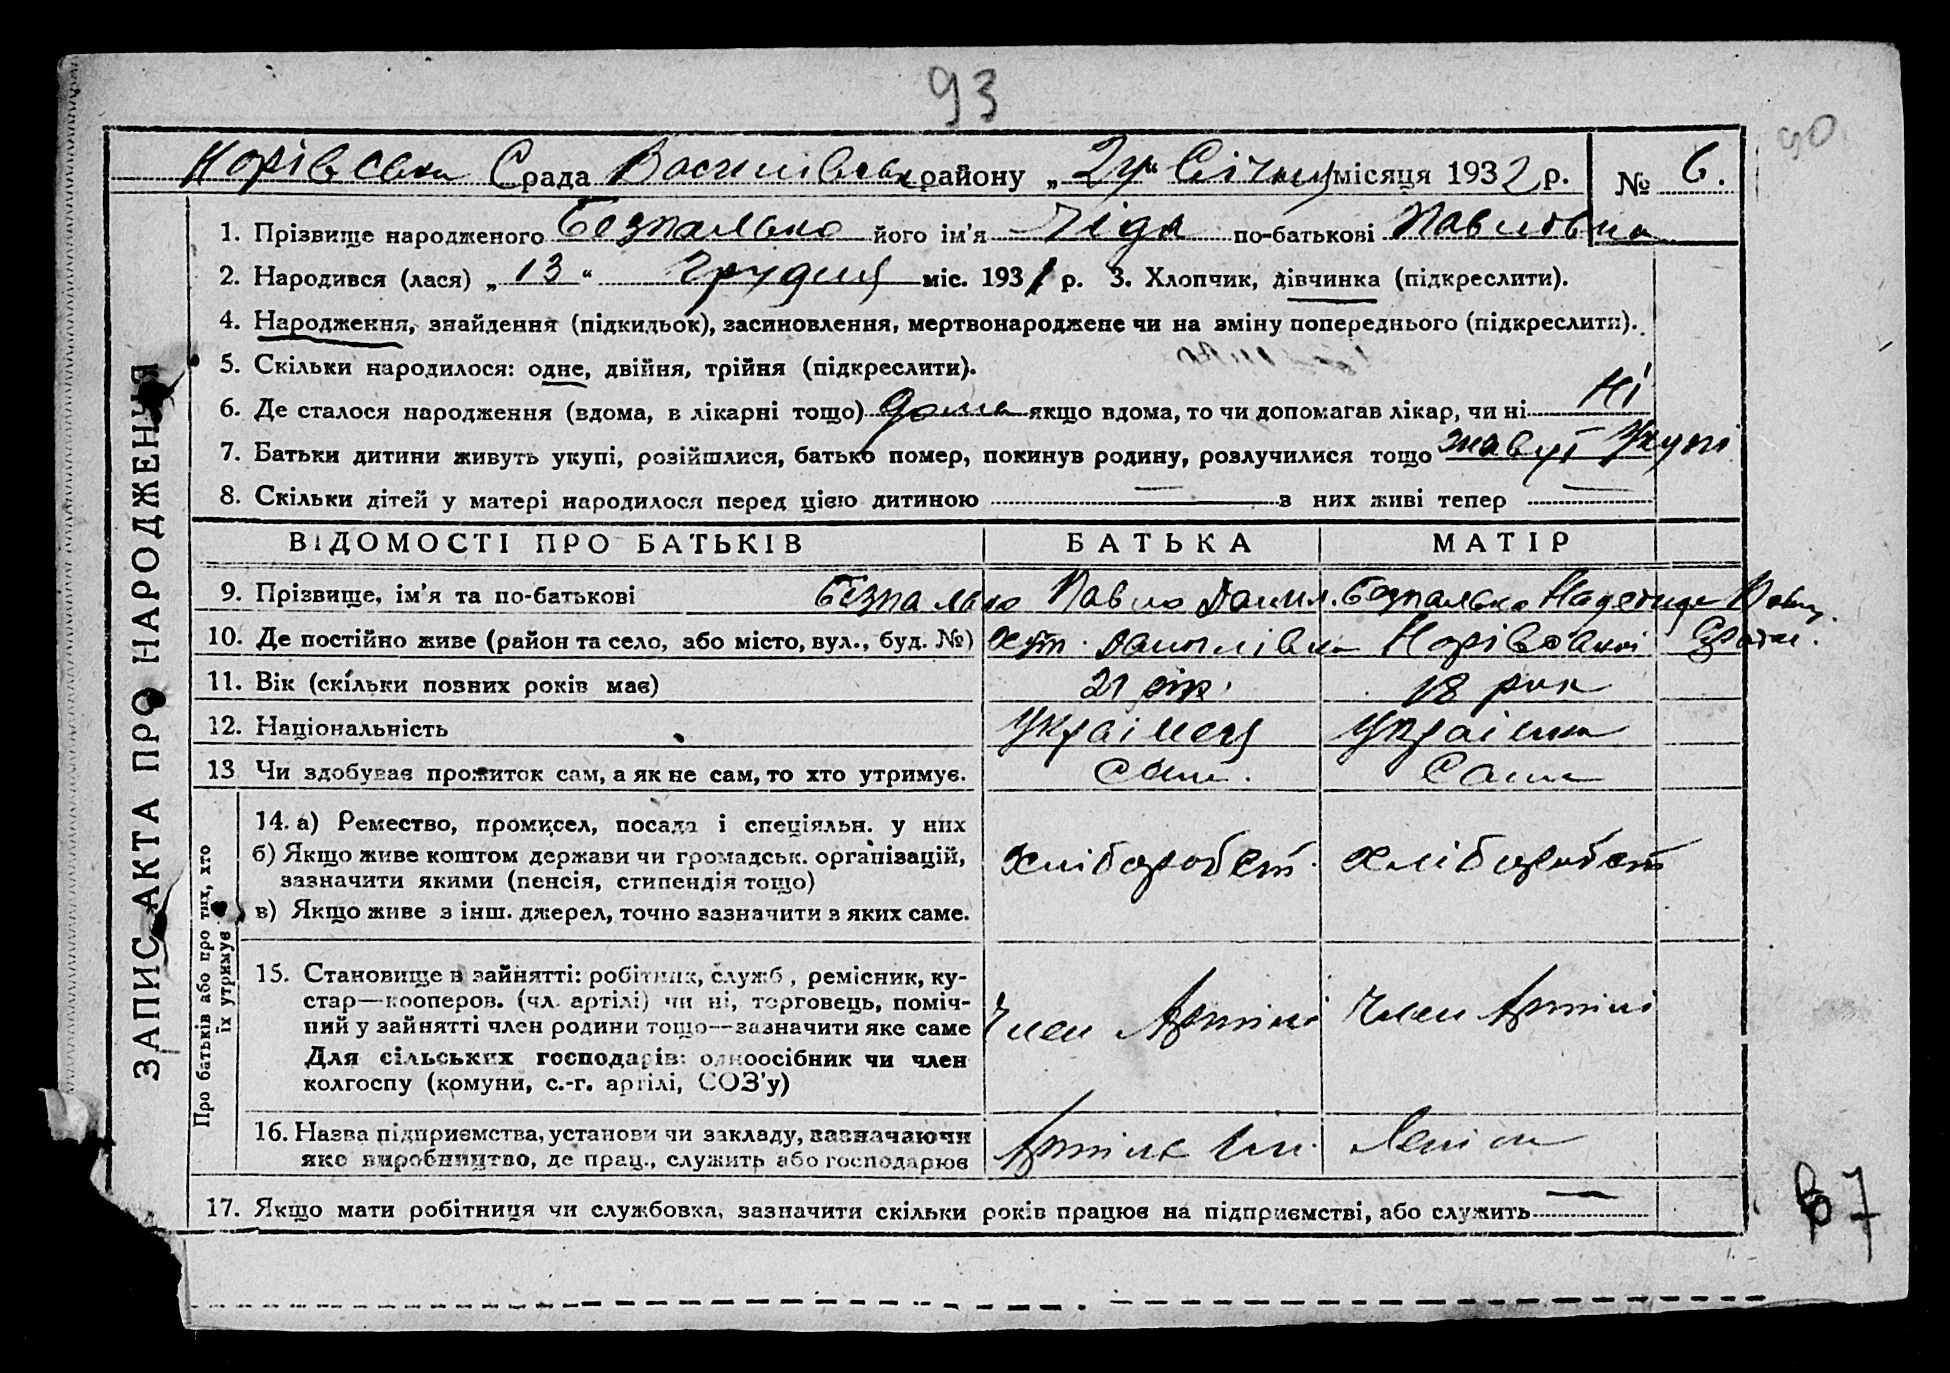 93
90
Срада району „24“ Січня місяця 1932 р. № 6.
1. Прізвище народженого Безпалько його ім'я Ліда по-батькові Павловна
2. Народився (лася) „13“ Грудня міс. 1931 р. 3. Хлопчик, дівчинка (підкреслити).
4. Народження, знайдення (підкидьок), засиновлення, мертвонароджене чи на зміну попереднього (підкреслити).
5. Скільки народилося: одне, двійня, трійня (підкреслити).
6. Де сталося народження (вдома, в лікарні тощо) дома якщо вдома, то чи допомагав лікар, чи ні Ні
7. Батьки дитини живуть укупі, розійшлися, батько помер, покинув родину, розлучилися тощо живуть укупі
8. Скільки дітей у матері народилося перед цією дитиною — з них живі тепер —
ВІДОМОСТІ ПРО БАТЬКІВ БАТЬКА МАТІР
9. Прізвище, ім'я та по-батькові Безпалько Павло Данил. Безпалько Надежда
10. Де постійно живе (район та село, або місто, вул., буд. №) хут. Данилівка
11. Вік (скільки повних років має) 21 рік 18 рок
12. Національність Українец Українка
13 Чи здобував прожиток сам, а як не сам, то хто утримує. Сам. Сама
14. а) Ремество, промисел, посада і спеціяльн. у них
б) Якщо живе коштом держави чи громадськ. організацій,
зазначити якими (пенсія, стипендія тощо)
хлібороб хлібороб
в) Якщо живе з інш. джерел, точно зазначити з яких саме.
15. Становище в зайнятті: робітник, служб., ремісник, ку-
стар—кооперов. (чл. артілі) чи ні, торговець, поміч-
ний у зайнятті член родини тощо—зазначити яке саме
Член Артілі Член Артілі
Для сільських господарів: одноосібник чи член
колгоспу (комуни, с.-г. артілі, СОЗ'у)
16. Назва підприємства, установи чи закладу, зазначаючи
яке виробництво, де прац., служить або господарює
Артіль Ім. Леніна
17. Якщо мати робітниця чи службовка, зазначити скільки років працює на підприємстві, або служить —
ЗАПИС АКТА ПРО НАРОДЖЕННЯ
Про батьків або про тих, хто
їх утримує